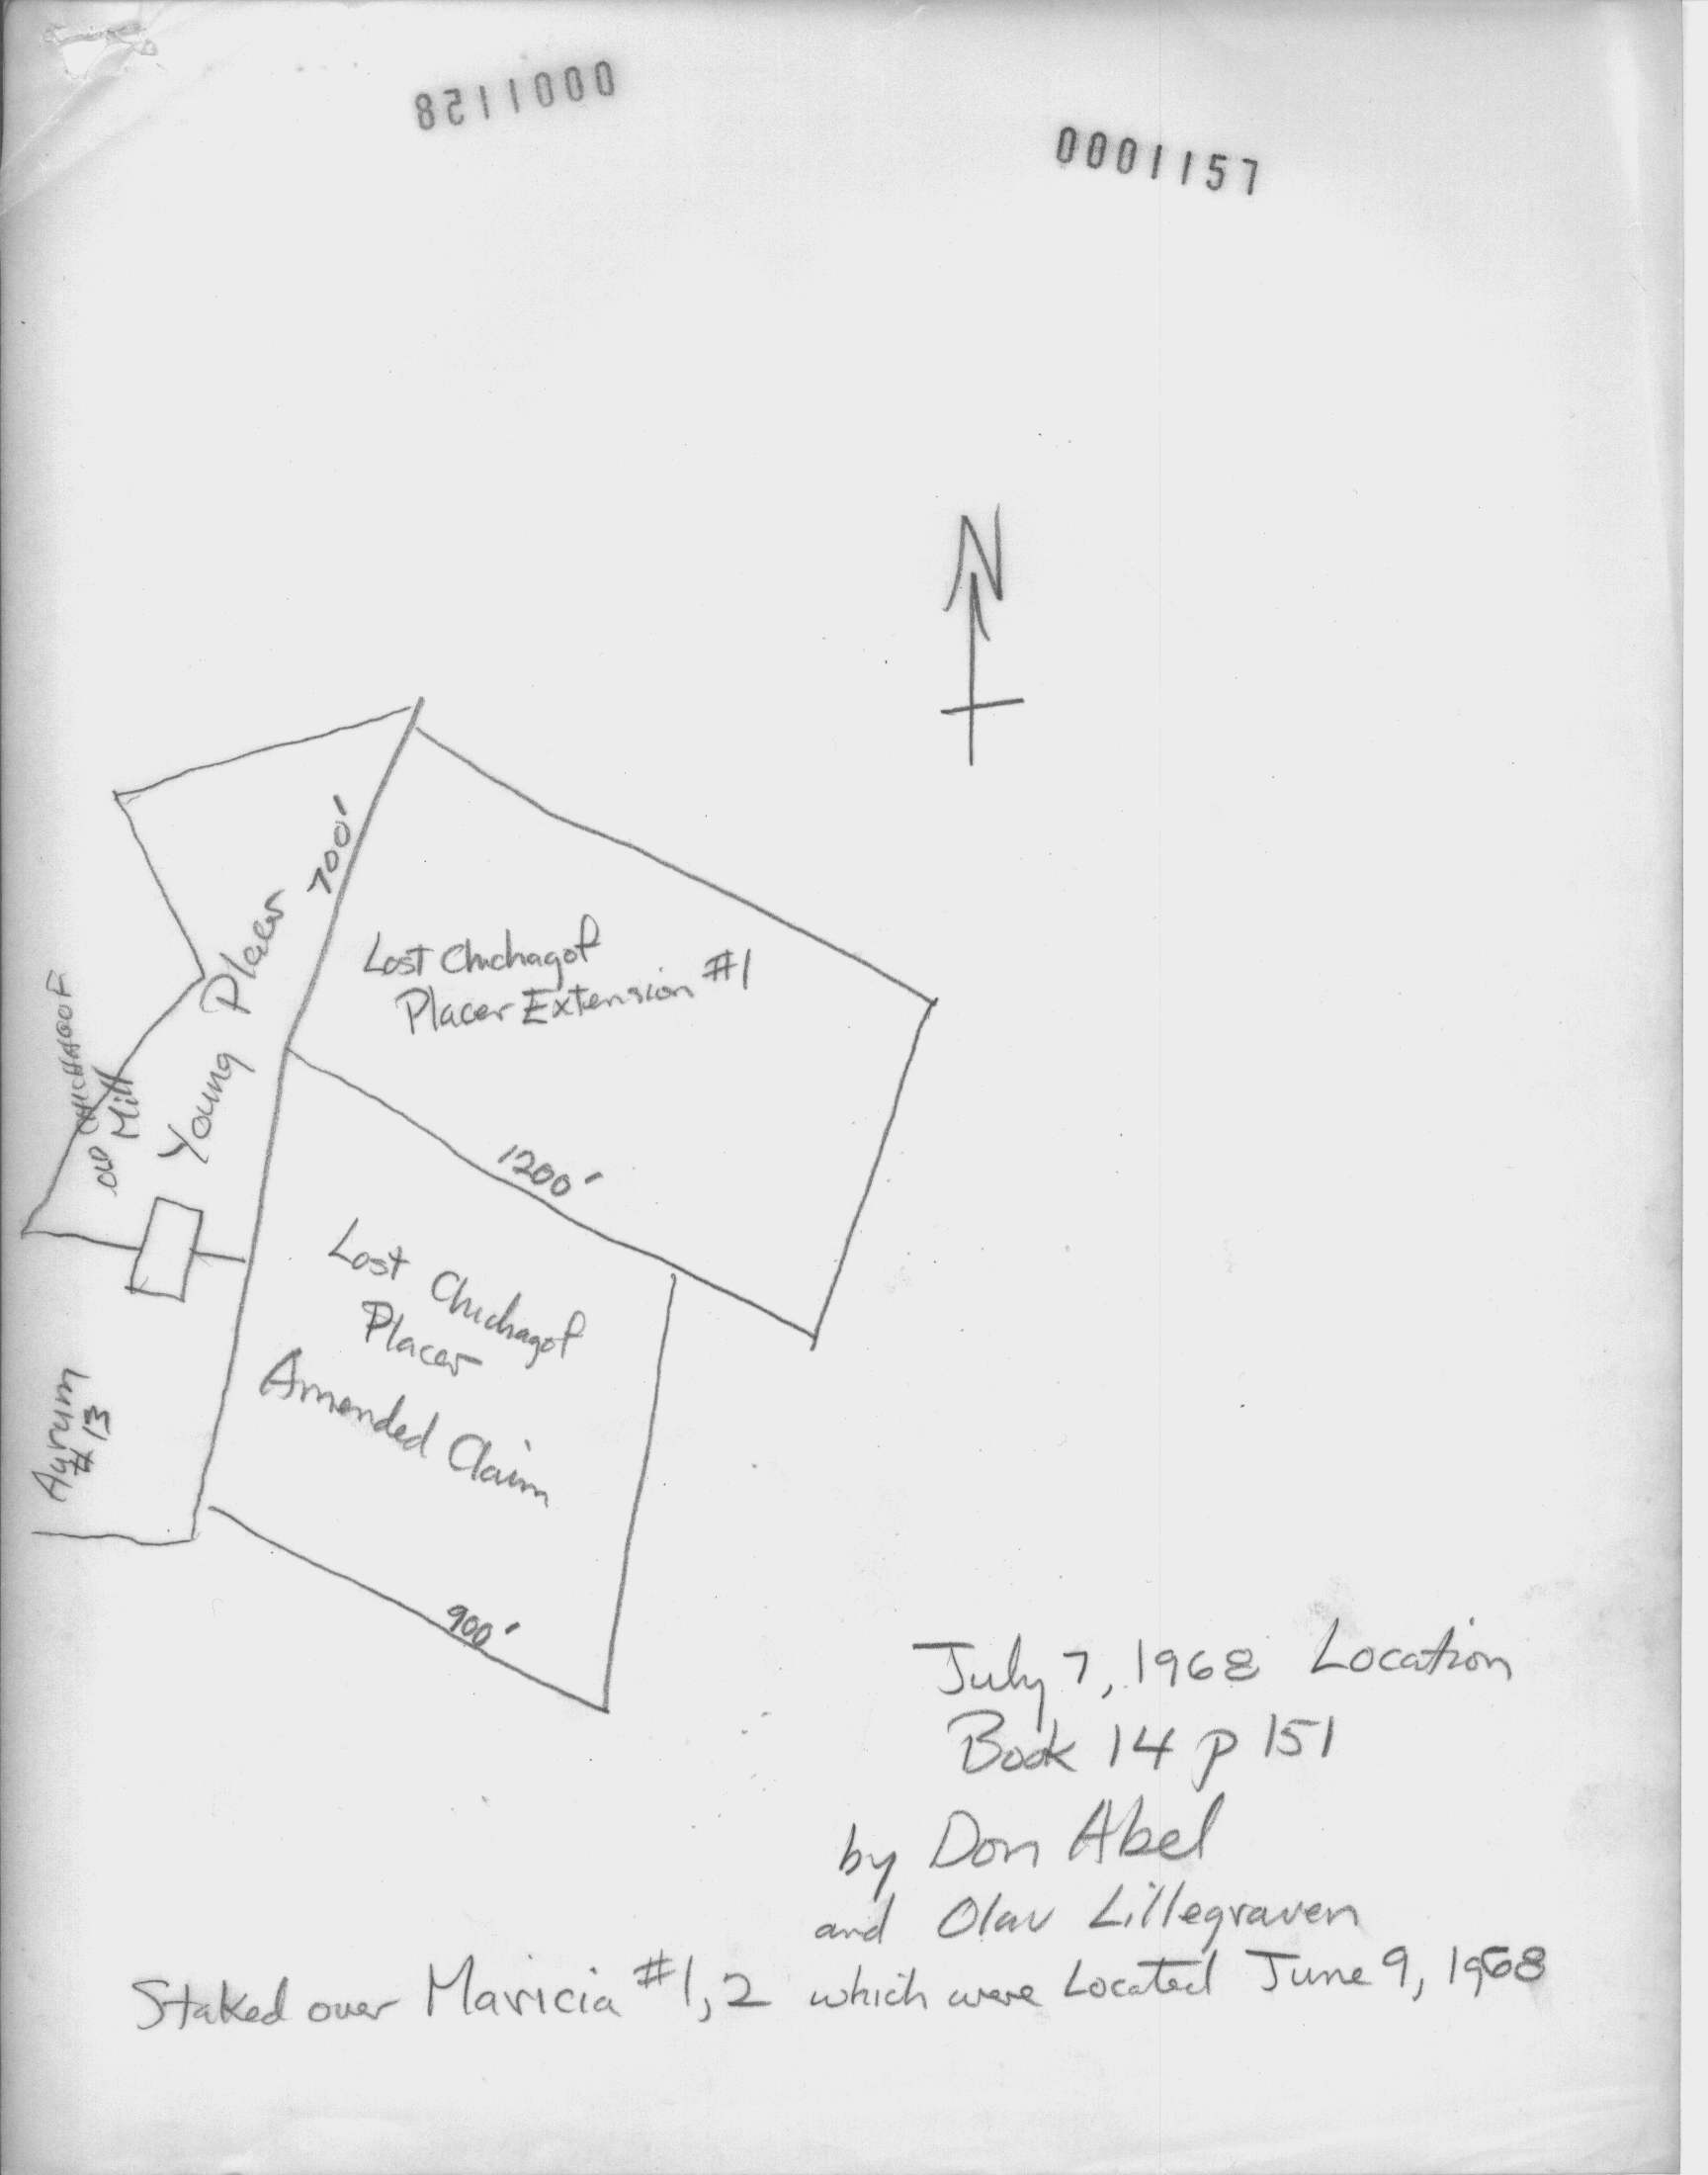 0001128
0001157
N
700'
Young Placer
Lost Chichagof
Placer Extension #1
OLD CHICHAGOF
Mill
1200'
Lost Chichagof
Placer
Amended Claim
#13
900'
July 7, 1968 Location
Book 14 p 151
by Don Abel
and Olav Lillegraven
Staked over Maricia #1, 2 which were Located June 9, 1968